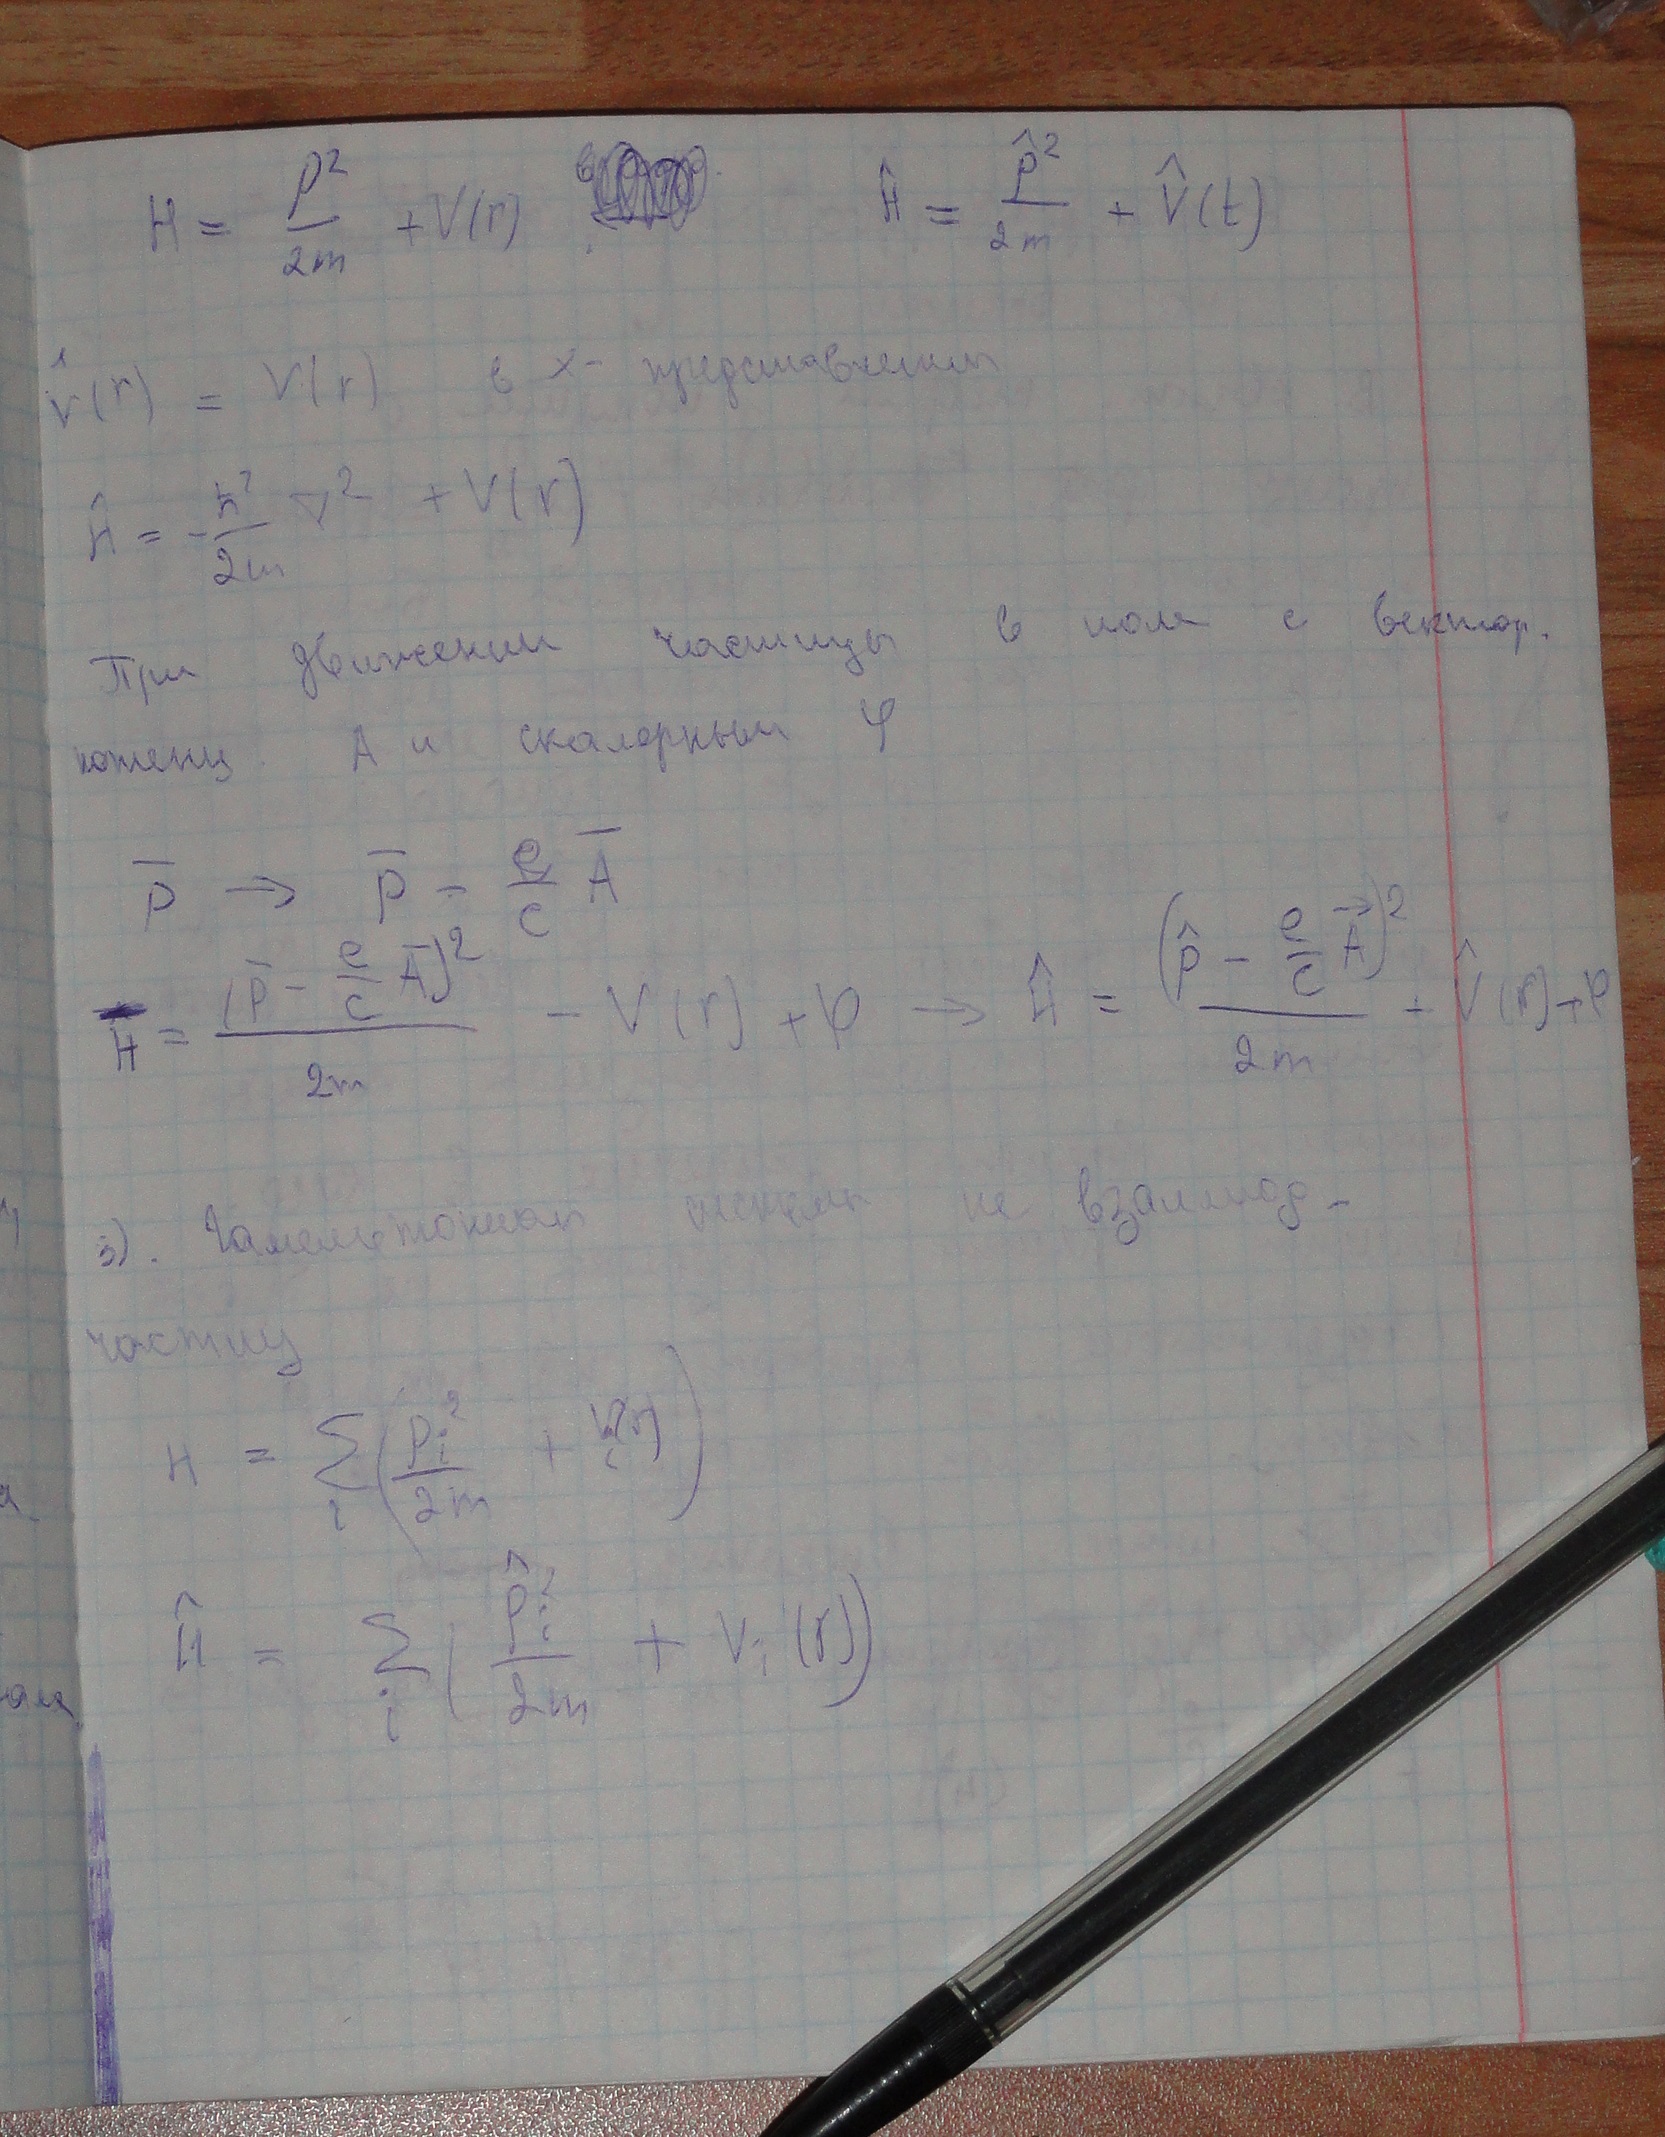 H = p²/2m + V(r) в Ĥ = p̂²/2m + V̂(t)
V̂(r) = V(r) в x- представлении
Ĥ = -ħ²/2m ∇² + V(r)
При движении частицы в поле с вектор.
потенц. A и скалярным φ
p̄ → p̄ - e/c Ā
H = (p̄ - e/c Ā)²/2m - V(r) + φ → Ĥ = (p̂ - e/c A⃗)²/2m + V̂(r) + φ
3). Гамильтониан системы не взаимод-
частиц
H = Σ_i (p_i²/2m + V_i(r))
Ĥ = Σ_i (p̂_i²/2m + V_i(r))